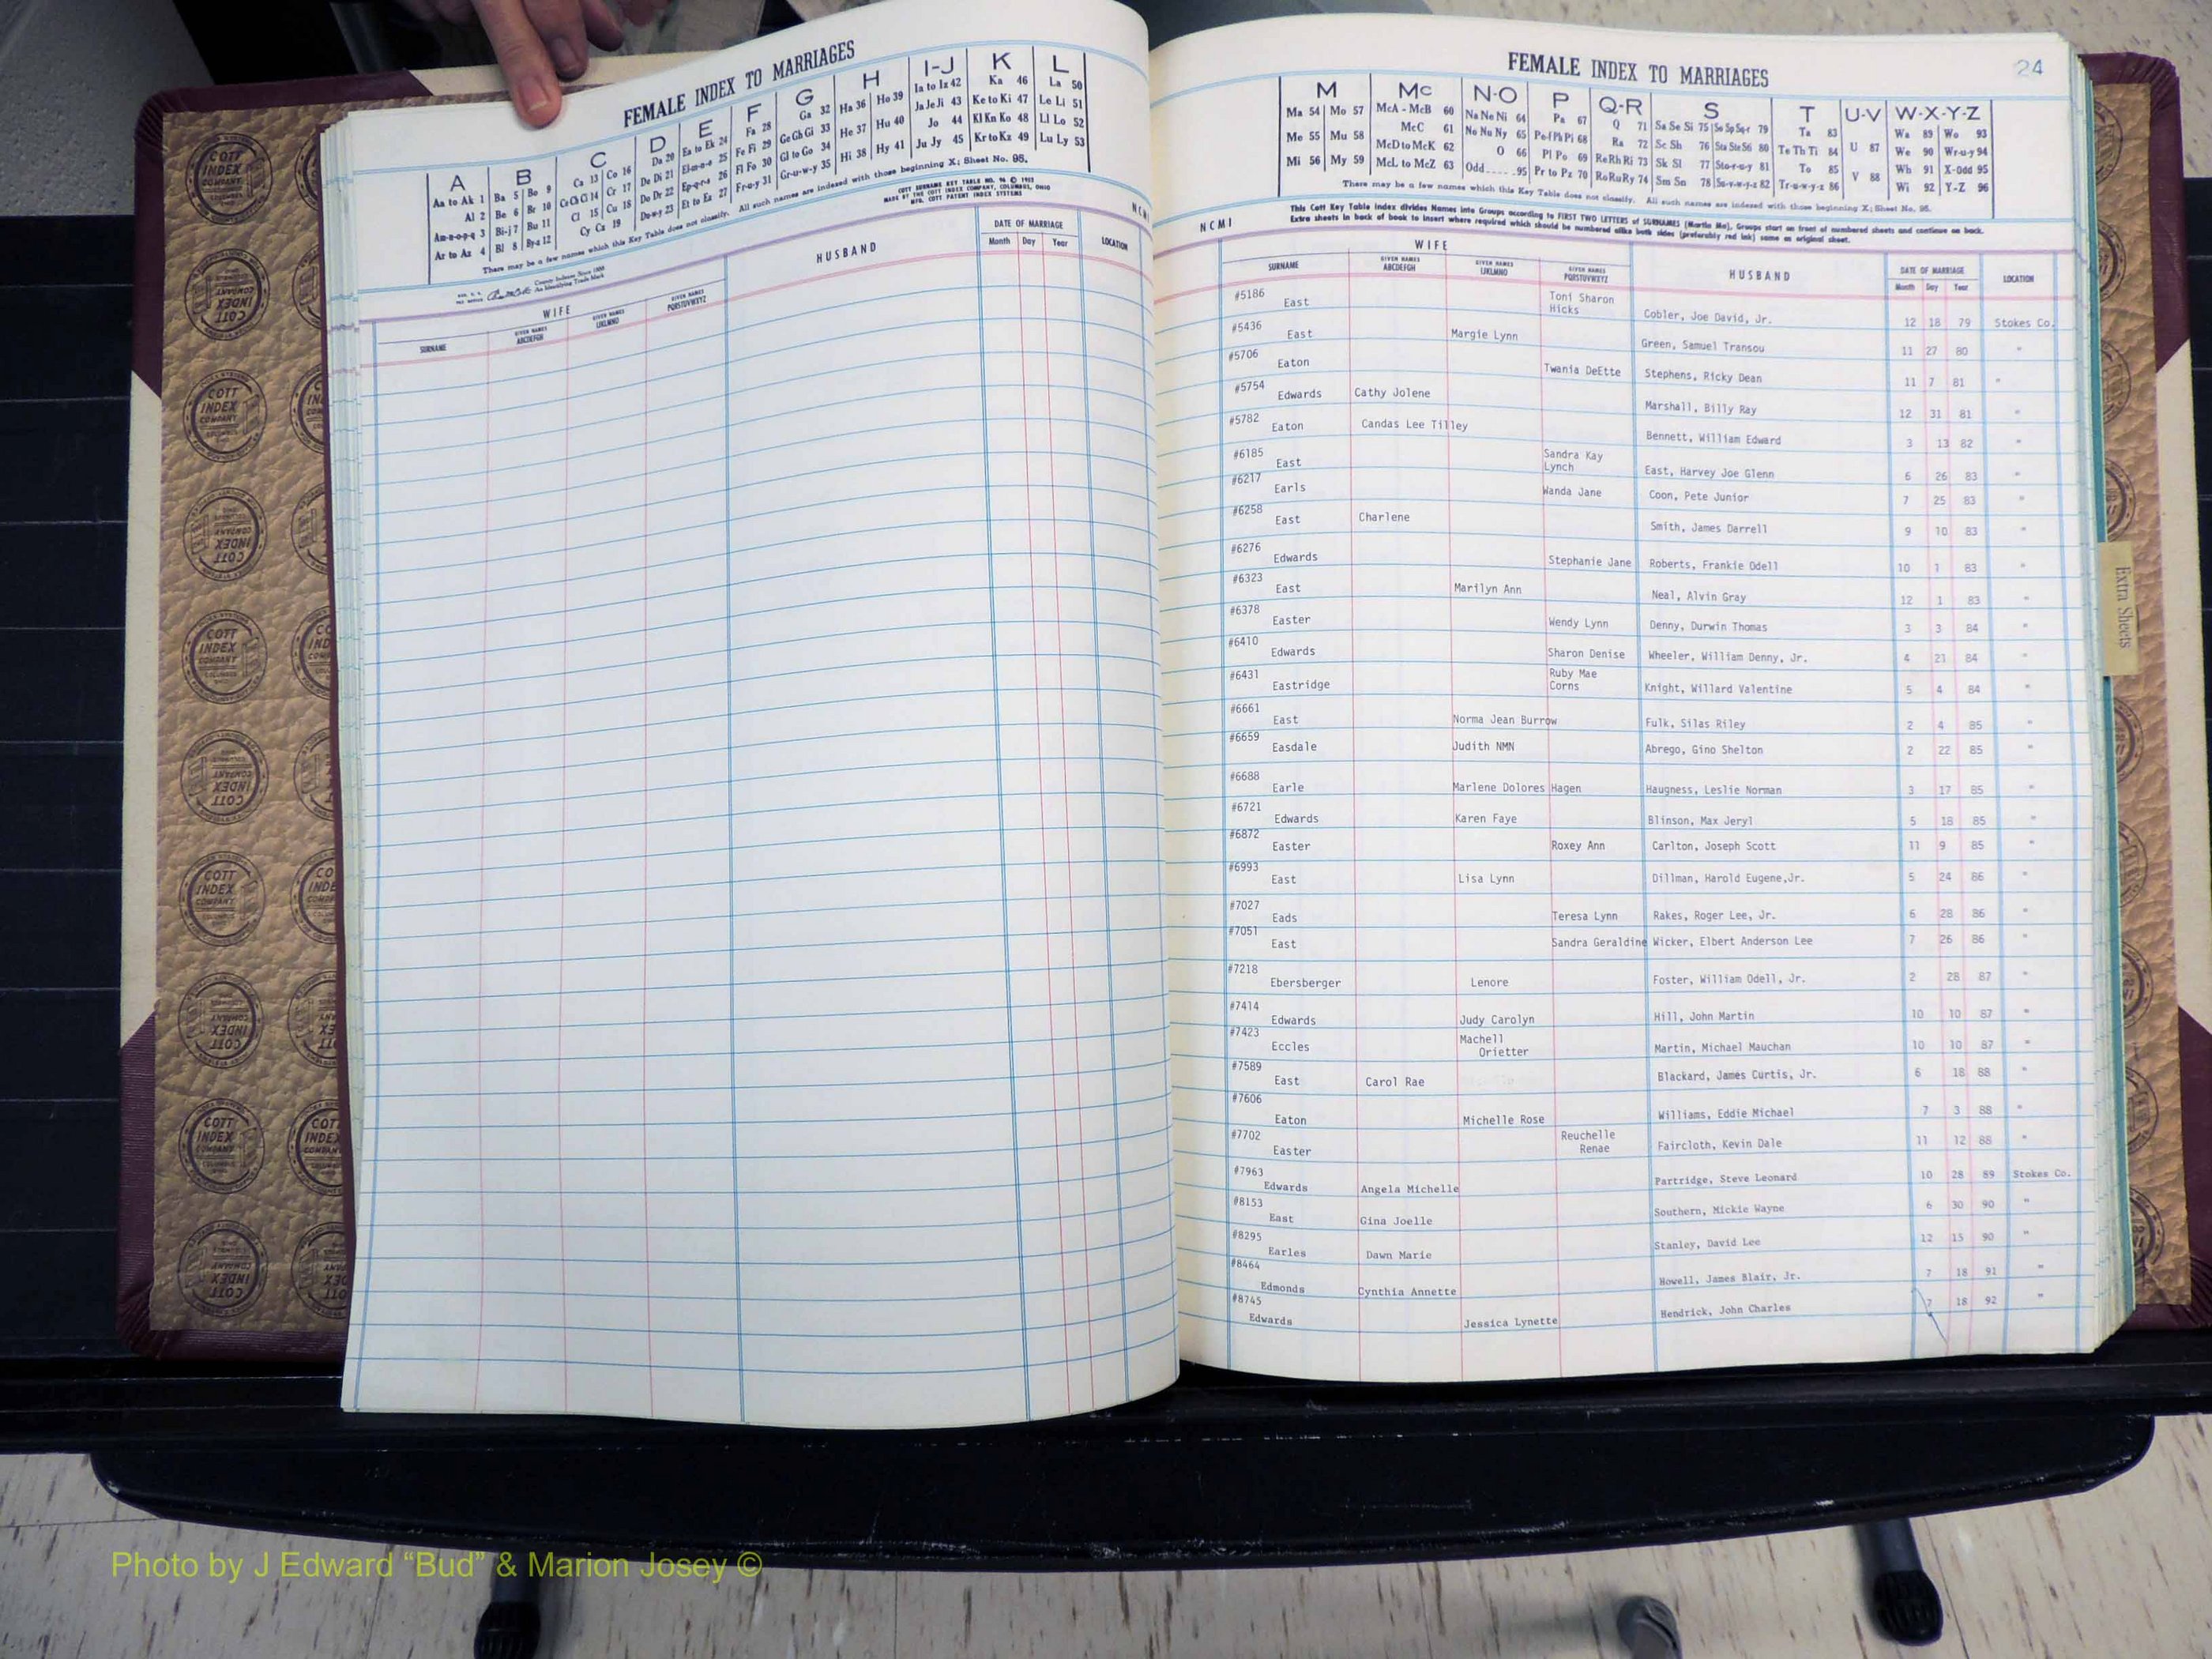 FEMALE INDEX TO MARRIAGES
A B C D E F G H I-J K L
Aa to Ak 1 Ba 5 Bo 9 Ca 13 Co 16 Da 20 Ea to Ek 24 Fa 28 Ga 32 Ha 36 Ho 39 Ia to Iz 42 Ka 46 La 50
Al 2 Be 6 Br 10 Ce Ch Ci 14 Cr 17 De Di 21 El-m-n-o 25 Fe Fi 29 Ge Gh Gi 33 He 37 Hu 40 Ja Je Ji 43 Ke to Ki 47 Le Li 51
Am-n-o-p-q 3 Bi-j 7 Bu 11 Cl 15 Cu 18 Do Dr 22 Ep-q-r-s 26 Fl Fo 30 Gl to Go 34 Hi 38 Hy 41 Jo 44 Kl Kn Ko 48 Ll Lo 52
Ar to Az 4 Bl 8 By-z 12 Cy Cz 19 Du-w-y 23 Et to Ez 27 Fr-u-y 31 Gr-u-w-y 35 Ju Jy 45 Kr to Kz 49 Lu Ly 53
There may be a few names which this Key Table does not classify. All such names are indexed with those beginning X; Sheet No. 95.
COTT SURNAME KEY TABLE NO. 96 © 1953
MADE BY THE COTT INDEX COMPANY, COLUMBUS, OHIO
MFG. COTT PATENT INDEX SYSTEMS
County Indexes Since 1888
An Identifying Trade Mark
NCMI
WIFE HUSBAND DATE OF MARRIAGE LOCATION
SURNAME GIVEN NAMES ABCDEFGH GIVEN NAMES IJKLMNO GIVEN NAMES PQRSTUVWXYZ Month Day Year
FEMALE INDEX TO MARRIAGES 24
M Mc N-O P Q-R S T U-V W-X-Y-Z
Ma 54 Mo 57 McA - McB 60 Na Ne Ni 64 Pa 67 Q 71 Sa Se Si 75 So Sp Sq-r 79 Ta 83 U 87 Wa 89 Wo 93
Me 55 Mu 58 McC 61 No Nu Ny 65 Pe-f Ph Pi 68 Ra 72 Sc Sh 76 Sta Ste Sti 80 Te Th Ti 84 V 88 We 90 Wr-u-y 94
Mi 56 My 59 McD to McK 62 O 66 Pl Po 69 Re Rh Ri 73 Sk Sl 77 Sto-r-u-y 81 To 85 Wh 91 X-Odd 95
McL to McZ 63 Odd 95 Pr to Pz 70 Ro Ru Ry 74 Sm Sn 78 Su-v-w-y-z 82 Tr-u-w-y-z 86 Wi 92 Y-Z 96
There may be a few names which this Key Table does not classify. All such names are indexed with those beginning X; Sheet No. 95.
NCMI
This Cott Key Table Index divides Names into Groups according to FIRST TWO LETTERS of SURNAMES (Martin Ma), Groups start on front of numbered sheets and continue on back.
Extra sheets in back of book to insert where required which should be numbered alike both sides (preferably red ink) same as original sheet.
WIFE HUSBAND DATE OF MARRIAGE LOCATION
SURNAME GIVEN NAMES ABCDEFGH GIVEN NAMES IJKLMNO GIVEN NAMES PQRSTUVWXYZ Month Day Year
#5186 East Toni Sharon Hicks Cobler, Joe David, Jr. 12 18 79 Stokes Co.
#5436 East Margie Lynn Green, Samuel Transou 11 27 80 "
#5706 Eaton Twania DeEtte Stephens, Ricky Dean 11 7 81 "
#5754 Edwards Cathy Jolene Marshall, Billy Ray 12 31 81 "
#5782 Eaton Candas Lee Tilley Bennett, William Edward 3 13 82 "
#6185 East Sandra Kay Lynch East, Harvey Joe Glenn 6 26 83 "
#6217 Earls Wanda Jane Coon, Pete Junior 7 25 83 "
#6258 East Charlene Smith, James Darrell 9 10 83 "
#6276 Edwards Stephanie Jane Roberts, Frankie Odell 10 1 83 "
#6323 East Marilyn Ann Neal, Alvin Gray 12 1 83 "
#6378 Easter Wendy Lynn Denny, Durwin Thomas 3 3 84 "
#6410 Edwards Sharon Denise Wheeler, William Denny, Jr. 4 21 84 "
#6431 Eastridge Ruby Mae Corns Knight, Willard Valentine 5 4 84 "
#6661 East Norma Jean Burrow Fulk, Silas Riley 2 4 85 "
#6659 Easdale Judith NMN Abrego, Gino Shelton 2 22 85 "
#6688 Earle Marlene Dolores Hagen Haugness, Leslie Norman 3 17 85 "
#6721 Edwards Karen Faye Blinson, Max Jeryl 5 18 85 "
#6872 Easter Roxey Ann Carlton, Joseph Scott 11 9 85 "
#6993 East Lisa Lynn Dillman, Harold Eugene,Jr. 5 24 86 "
#7027 Eads Teresa Lynn Rakes, Roger Lee, Jr. 6 28 86 "
#7051 East Sandra Geraldine Wicker, Elbert Anderson Lee 7 26 86 "
#7218 Ebersberger Lenore Foster, William Odell, Jr. 2 28 87 "
#7414 Edwards Judy Carolyn Hill, John Martin 10 10 87 "
#7423 Eccles Machell Orietter Martin, Michael Mauchan 10 10 87 "
#7589 East Carol Rae Blackard, James Curtis, Jr. 6 18 88 "
#7606 Eaton Michelle Rose Williams, Eddie Michael 7 3 88 "
#7702 Easter Reuchelle Renae Faircloth, Kevin Dale 11 12 88 "
#7963 Edwards Angela Michelle Partridge, Steve Leonard 10 28 89 Stokes Co.
#8153 East Gina Joelle Southern, Mickie Wayne 6 30 90 "
#8295 Earles Dawn Marie Stanley, David Lee 12 15 90 "
#8464 Edmonds Cynthia Annette Howell, James Blair, Jr. 7 18 91 "
#8745 Edwards Jessica Lynette Hendrick, John Charles 7 18 92 "
Extra Sheets
COTT INDEX COMPANY
Photo by J Edward “Bud” & Marion Josey ©